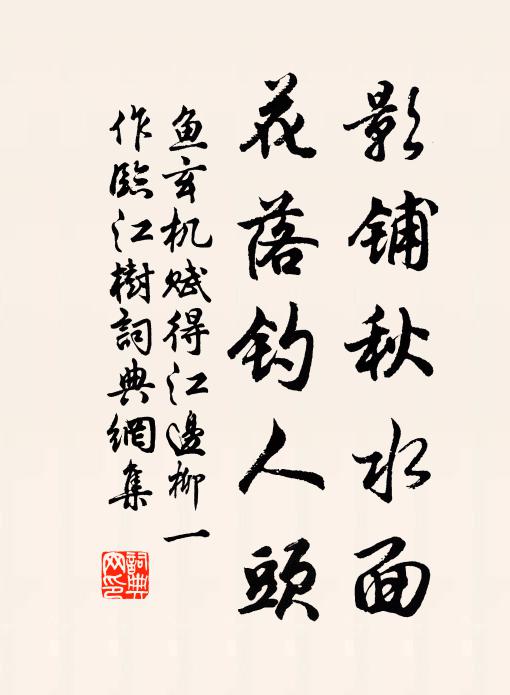 影铺秋水面
花落钓人头
鱼玄机赋得江邊柳一
作臨江樹詞典網集
詞典
网印